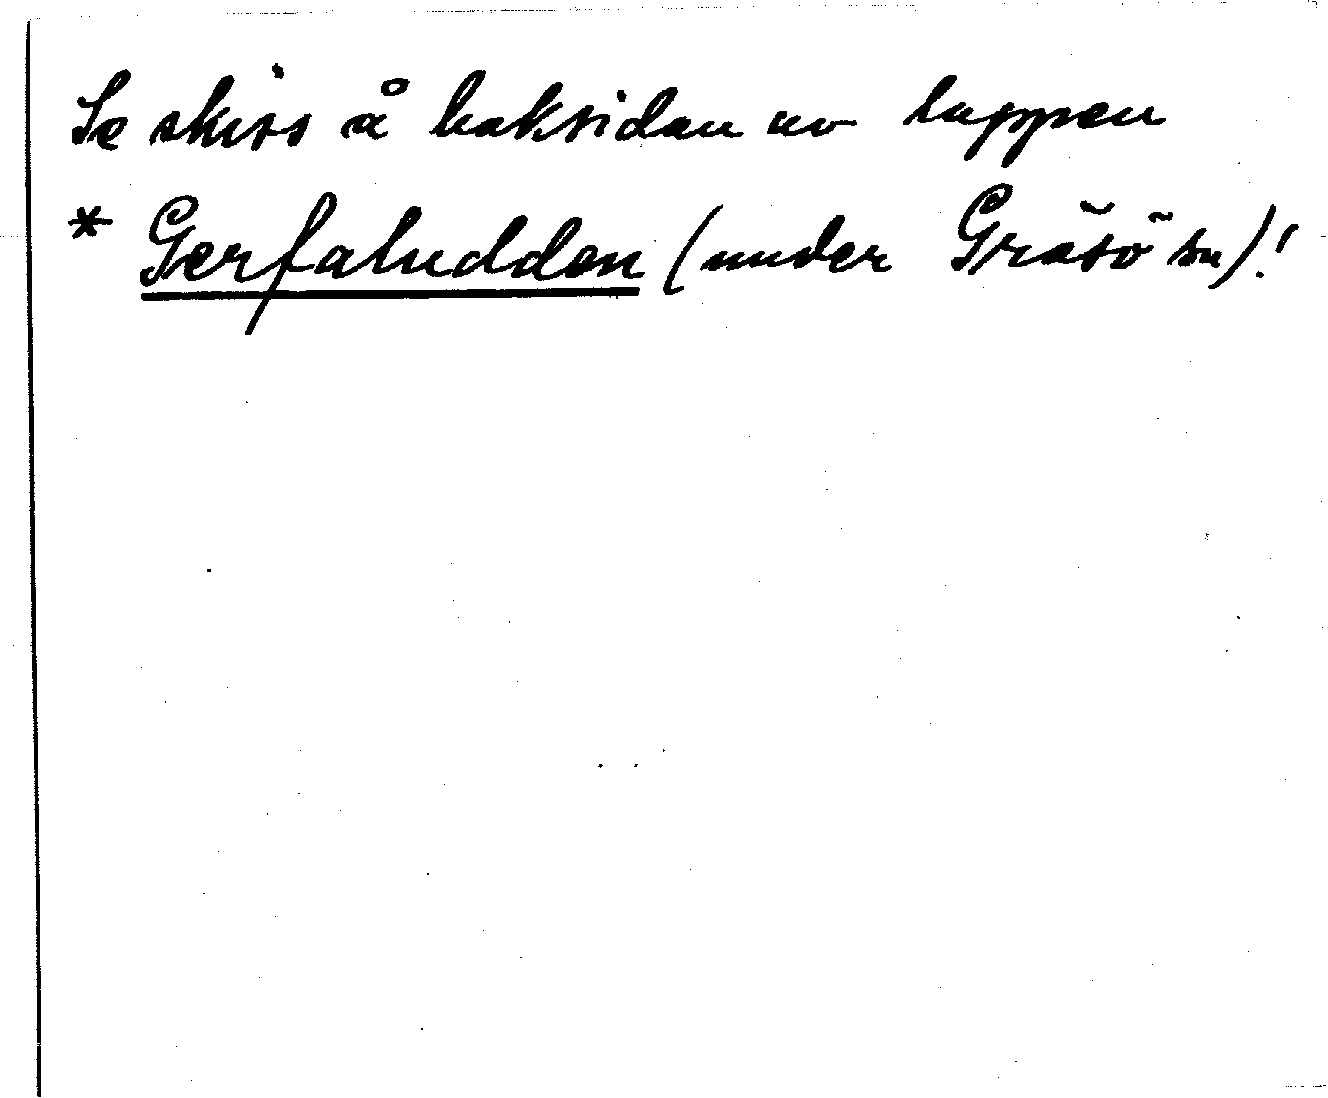 Se skiss å baksidan av lappen
* Gerfaludden (under Gräsö sn)!